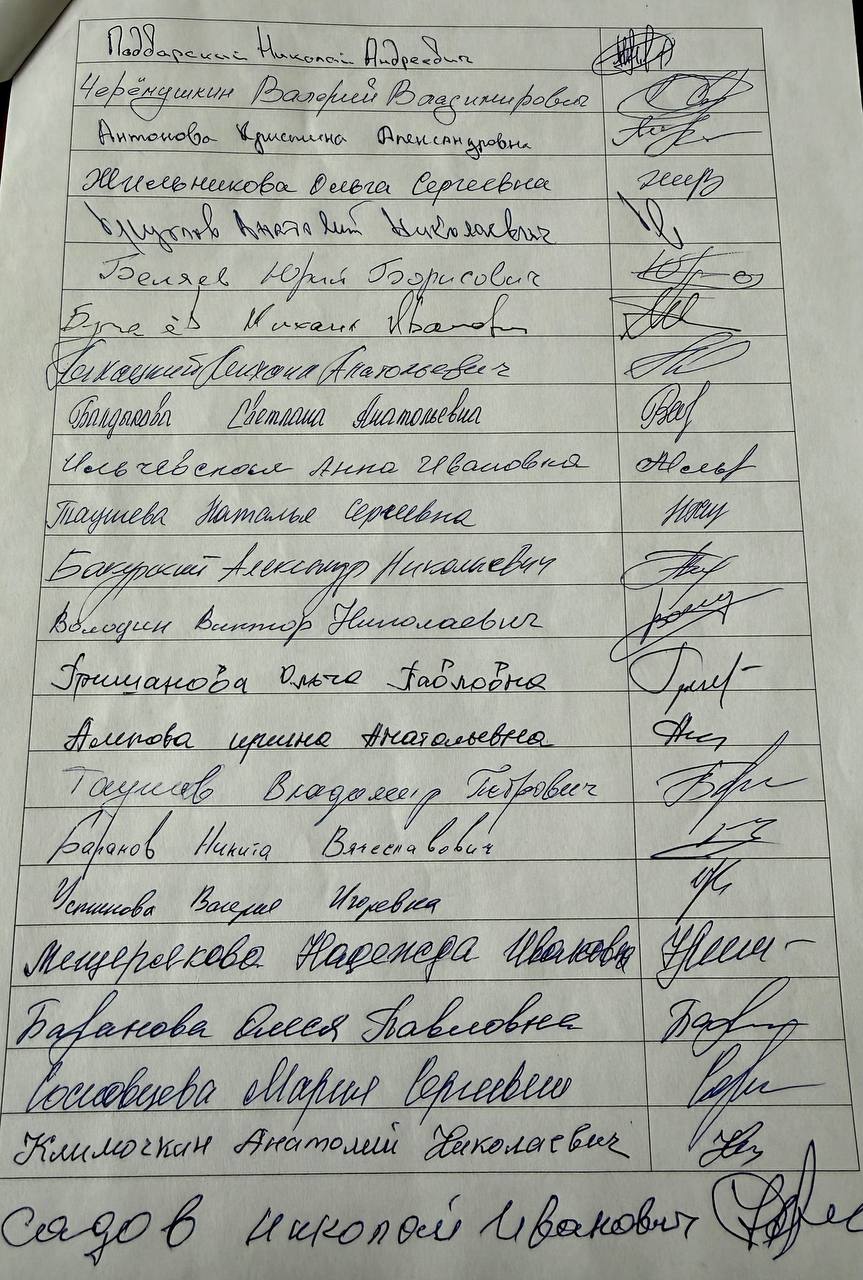 Поддарский Николай Андреевич
Черёмушкин Валерий Владимирович
Антонова Кристина Александровна
Жильникова Ольга Сергеевна
Анатолий Николаевич
Беляев Юрий Борисович
Михаил Иванович
Михаил Анатольевич
Балдыкова Светлана Анатольевна
Ильчевская Анна Ивановна
Таушева Наталья Сергеевна
Бакурский Александр Николаевич
Володин Виктор Николаевич
Гришанова Ольга Павловна
Алипова Ирина Анатольевна
Таушев Владимир Петрович
Баранов Никита Вячеславович
Устинова Валерия Игоревна
Мещерякова Надежда Ивановна
Баранова Олеся Павловна
Сосновцева Мария Сергеевна
Климочкин Анатолий Николаевич
Садов Николай Иванович